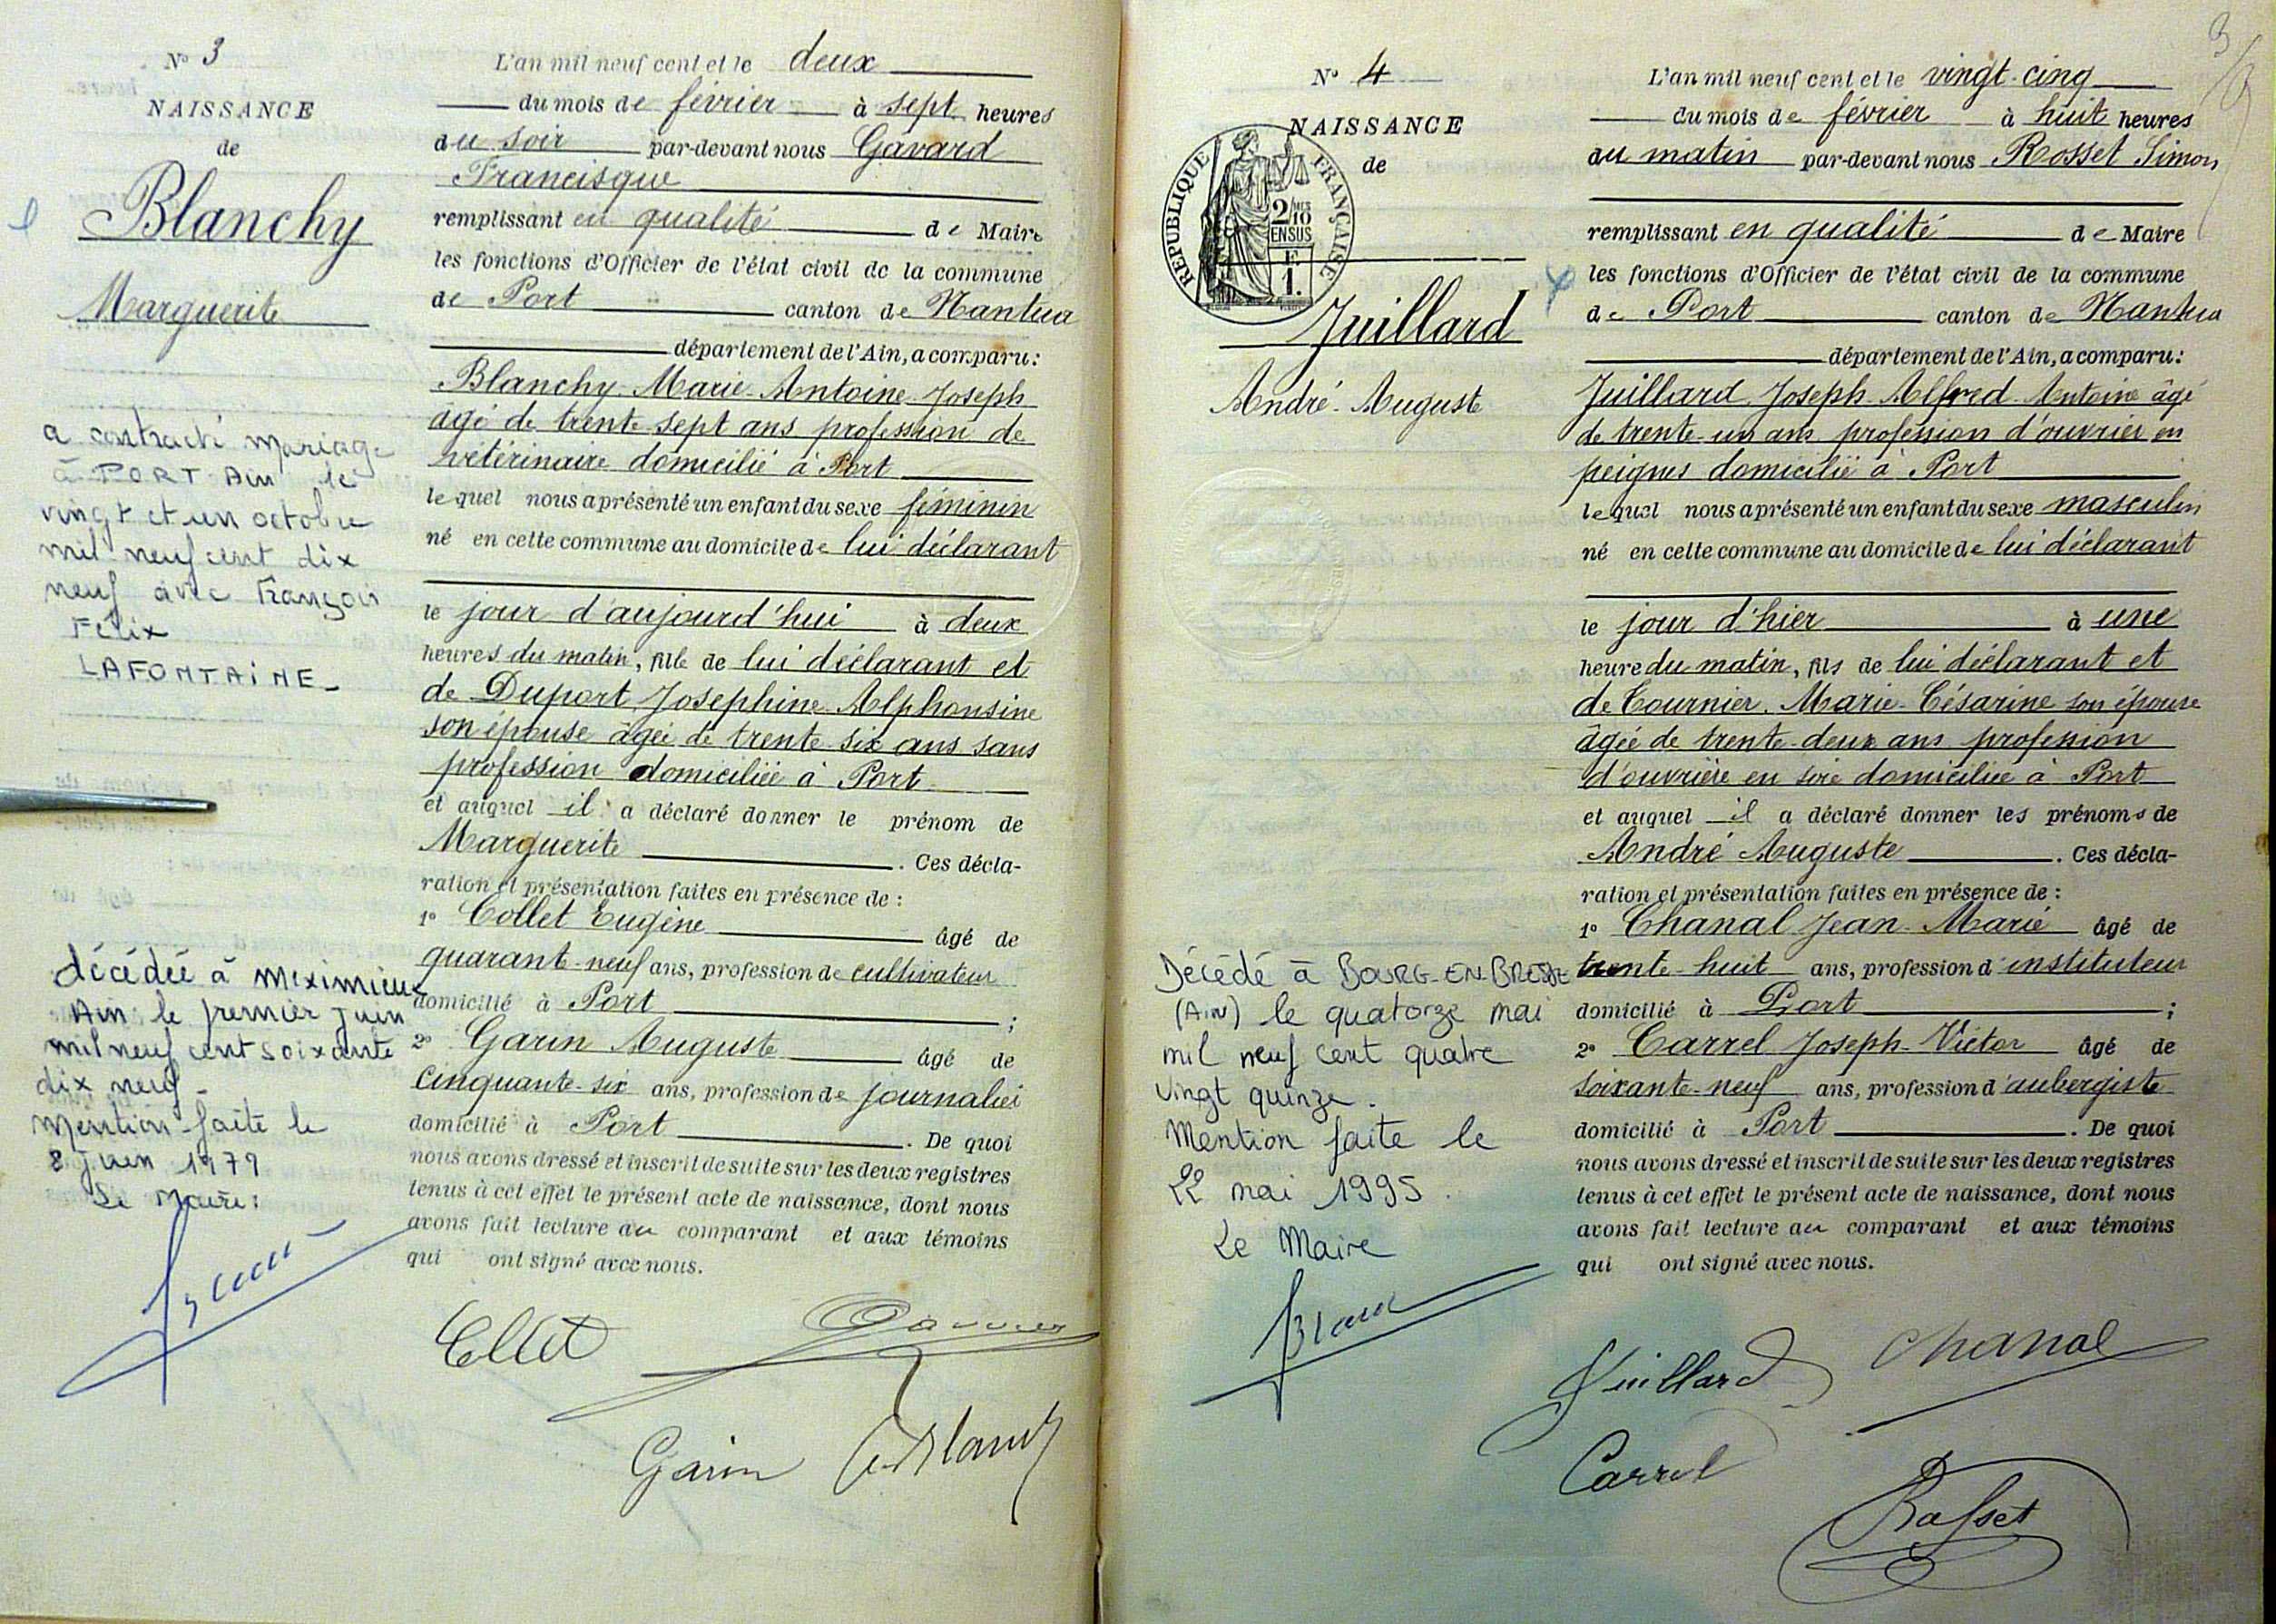 N° 3
NAISSANCE
de
Blanchy
Marguerite
a contracté mariage
à PORT Ain le
vingt et un octobre
mil neuf cent dix
neuf avec François
Félix
LAFONTAINE_
décédée à Meximieux
Ain le premier juin
mil neuf cent soixante
dix neuf_
Mention faite le
8 juin 1979
Le Maire:
L'an mil neuf cent et le deux
du mois de février à sept heures
du soir par-devant nous Gavard
Francisque
remplissant en qualité de Maire
les fonctions d'Officier de l'état civil de la commune
de Port canton de Nantua
département de l'Ain, a comparu:
Blanchy Marie-Antoine-Joseph
âgé de trente-sept ans profession de
vétérinaire domicilié à Port
lequel nous a présenté un enfant du sexe féminin
né en cette commune au domicile de lui déclarant
le jour d'aujourd'hui à deux
heures du matin, fille de lui déclarant et
de Duport Josephine-Alphonsine
son épouse âgée de trente-six ans sans
profession domiciliée à Port
et auquel il a déclaré donner le prénom de
Marguerite. Ces décla-
ration et présentation faites en présence de :
1° Collet Eugène âgé de
quarant-neuf ans, profession de cultivateur
domicilié à Port ;
2° Garin Auguste âgé de
cinquante-six ans, profession de journalier
domicilié à Port. De quoi
nous avons dressé et inscrit de suite sur les deux registres
tenus à cet effet le présent acte de naissance, dont nous
avons fait lecture au comparant et aux témoins
qui ont signé avec nous.
Collet
Garin
3
N° 4
NAISSANCE
de
RÉPUBLIQUE FRANÇAISE
2/10
EN SUS
F.
1.
Juillard
André-Auguste
Décédé à BOURG-EN-BRESSE
(Ain) le quatorze mai
mil neuf cent quatre
vingt quinze.
Mention faite le
22 mai 1995.
Le Maire
L'an mil neuf cent et le vingt-cinq
du mois de février à huit heures
du matin par-devant nous Rosset Simon
remplissant en qualité de Maire
les fonctions d'Officier de l'état civil de la commune
de Port canton de Nantua
département de l'Ain, a comparu:
Juillard Joseph-Alfred-Antoine âgé
de trente-un ans profession d'ouvrier en
peignes domicilié à Port
lequel nous a présenté un enfant du sexe masculin
né en cette commune au domicile de lui déclarant
le jour d'hier à une
heure du matin, fils de lui déclarant et
de Tournier Marie-Césarine son épouse
âgée de trente-deux ans profession
d'ouvrière en soie domiciliée à Port
et auquel il a déclaré donner les prénoms de
André Auguste. Ces décla-
ration et présentation faites en présence de :
1° Chanal Jean-Marie âgé de
trente-huit ans, profession d'instituteur
domicilié à Port ;
2° Carrel Joseph-Victor âgé de
soixante-neuf ans, profession d'aubergiste
domicilié à Port. De quoi
nous avons dressé et inscrit de suite sur les deux registres
tenus à cet effet le présent acte de naissance, dont nous
avons fait lecture au comparant et aux témoins
qui ont signé avec nous.
Juillard Chanal
Carrel
Rosset